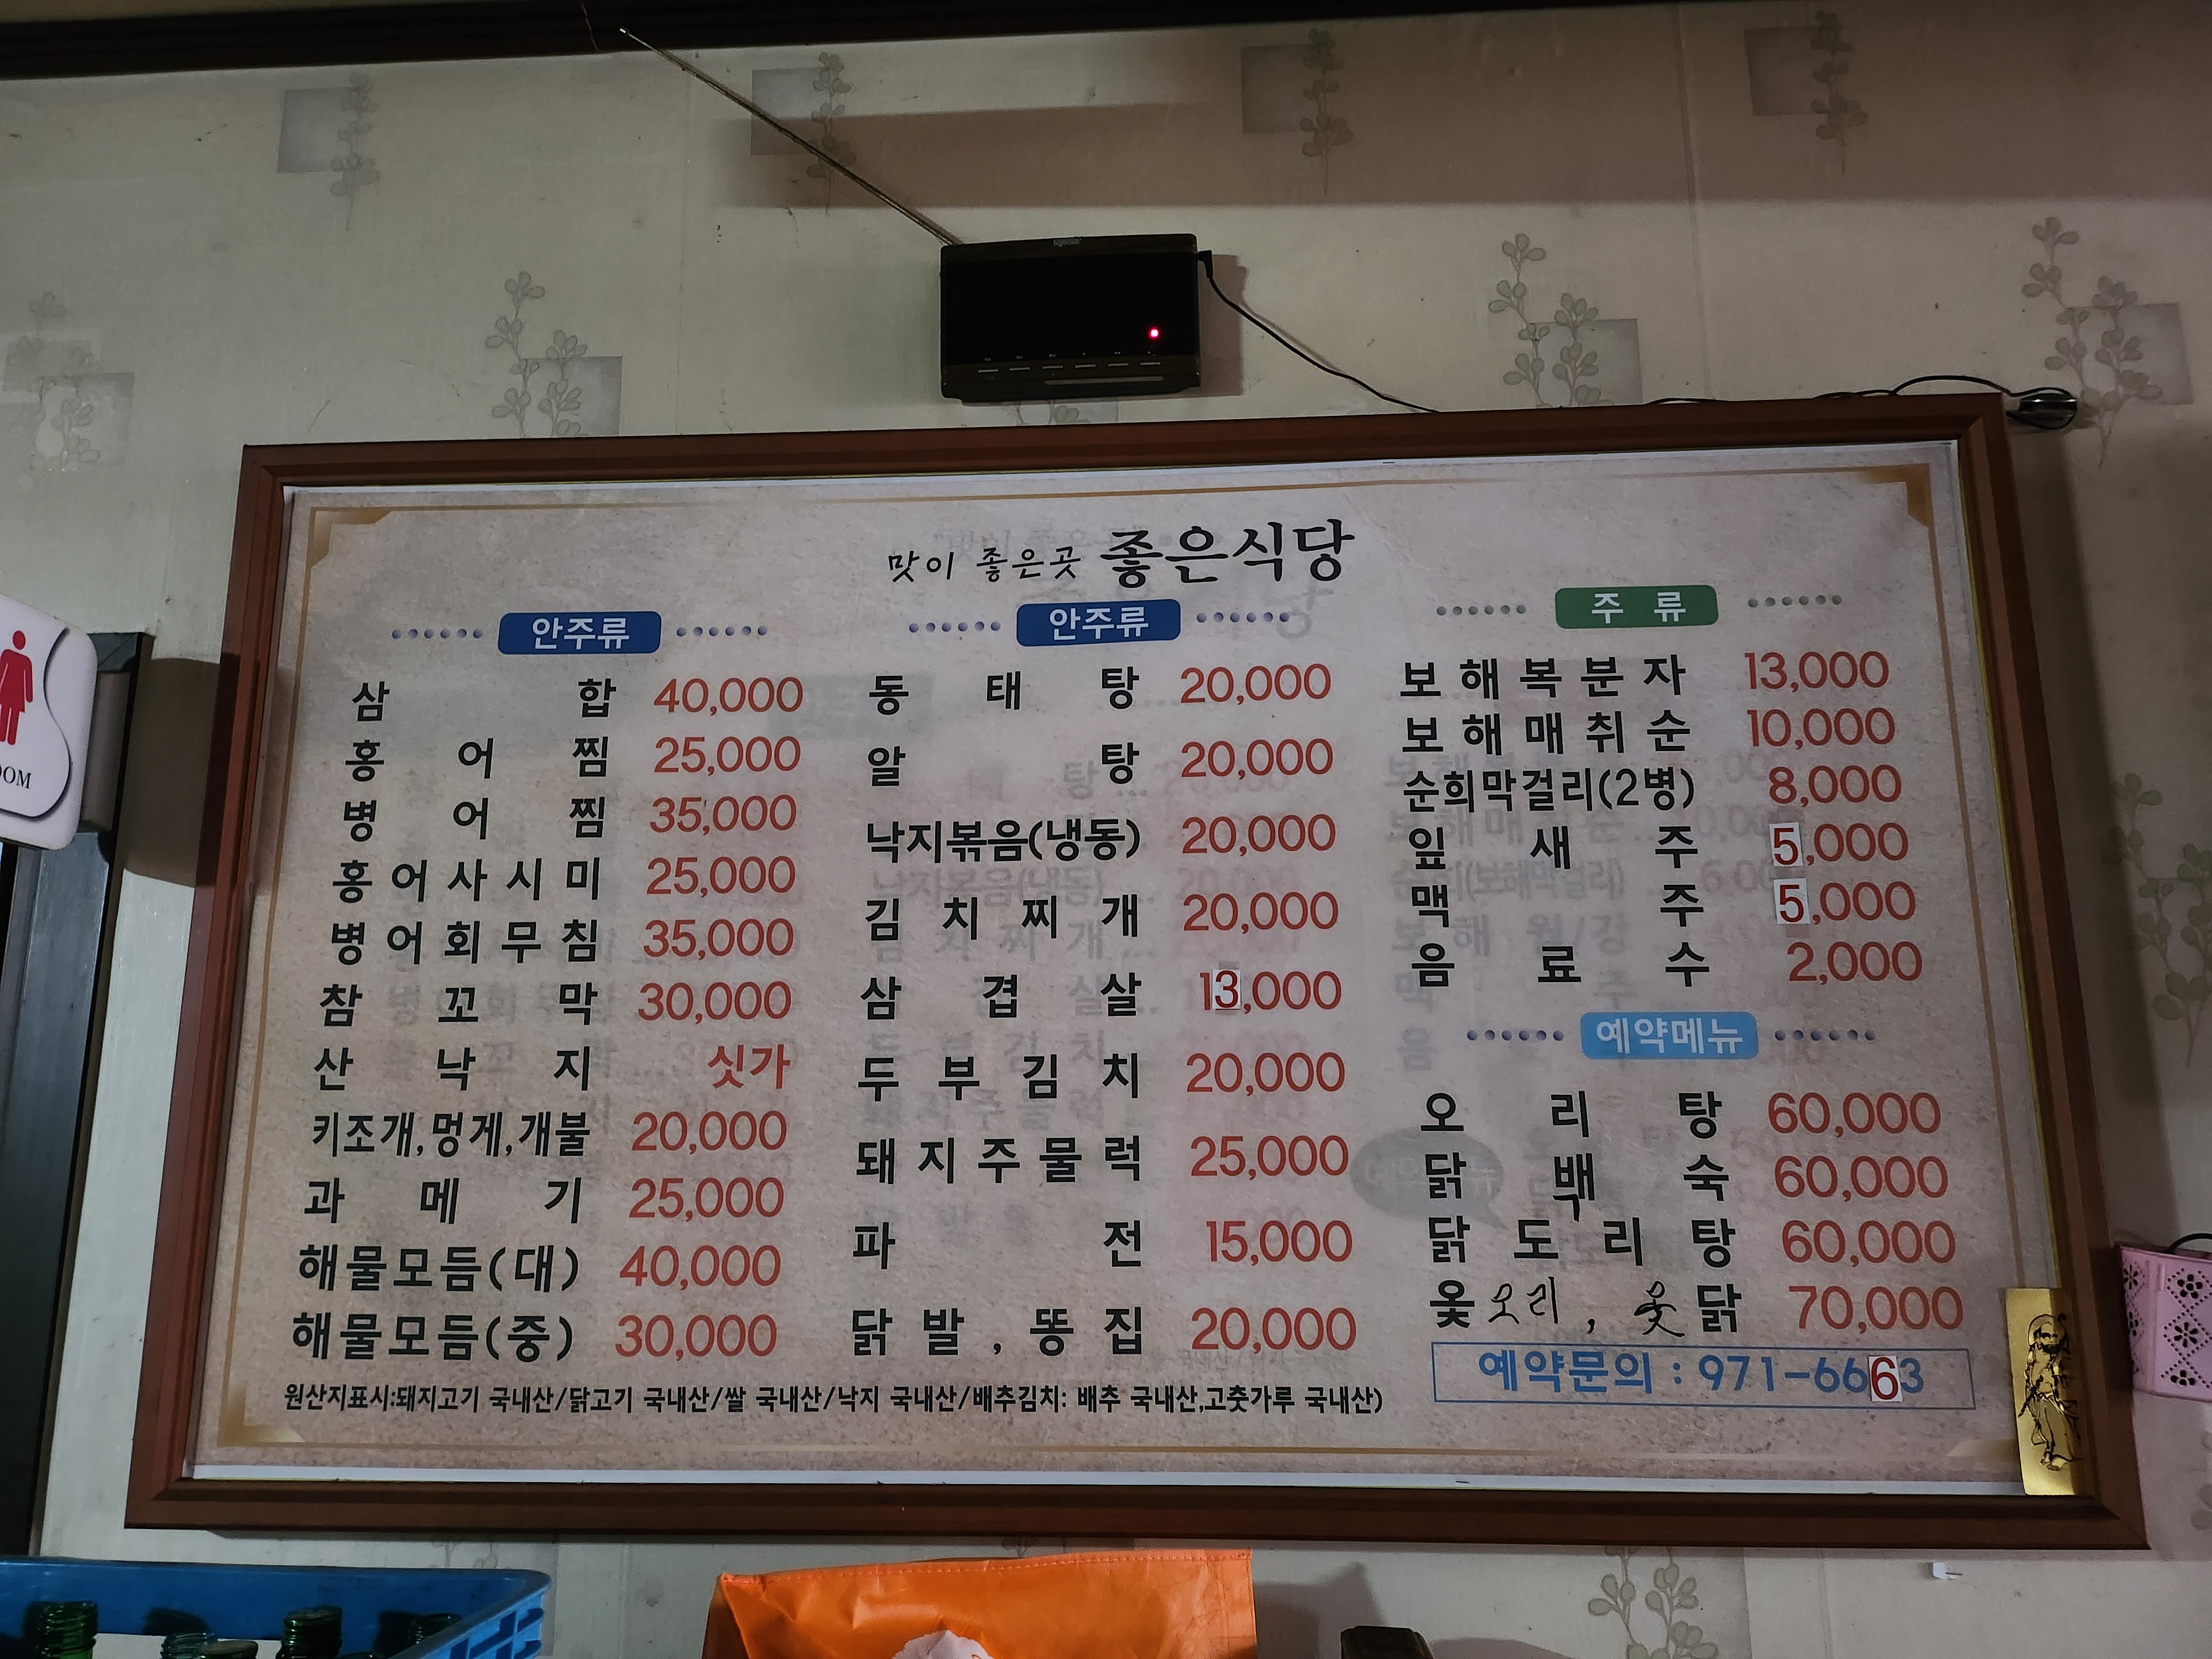 맛이 좋은곳 좋은식당
안주류
삼합 40,000
홍어찜 25,000
병어찜 35,000
홍어사시미 25,000
병어회무침 35,000
참꼬막 30,000
산낙지 싯가
키조개,멍게,개불 20,000
과메기 25,000
해물모듬(대) 40,000
해물모듬(중) 30,000
안주류
동태탕 20,000
알탕 20,000
낙지볶음(냉동) 20,000
김치찌개 20,000
삼겹살 13,000
두부김치 20,000
돼지주물럭 25,000
파전 15,000
닭발,똥집 20,000
주류
보해복분자 13,000
보해매취순 10,000
순희막걸리(2병) 8,000
잎새주 5,000
맥주 5,000
음료수 2,000
예약메뉴
오리탕 60,000
닭백숙 60,000
닭도리탕 60,000
옻오리, 옻닭 70,000
예약문의 : 971-6663
원산지표시:돼지고기 국내산/닭고기 국내산/쌀 국내산/낙지 국내산/배추김치: 배추 국내산,고춧가루 국내산)
OOM